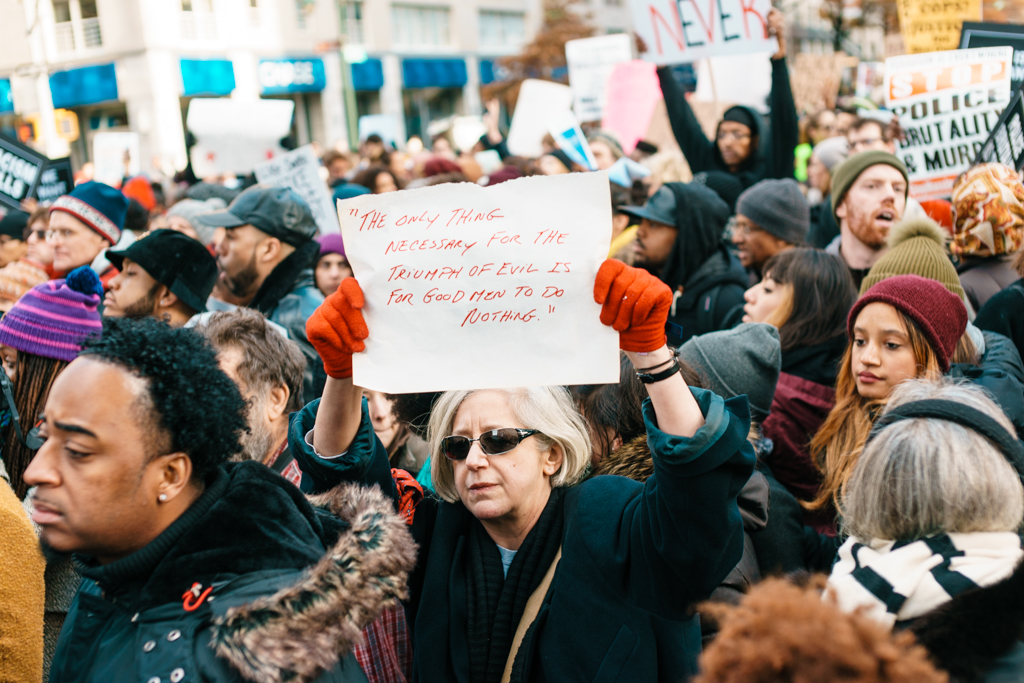 NEVER
STOP
POLICE
BRUTALITY
& MURDER
"THE ONLY THING
NECESSARY FOR THE
TRIUMPH OF EVIL IS
FOR GOOD MEN TO DO
NOTHING."